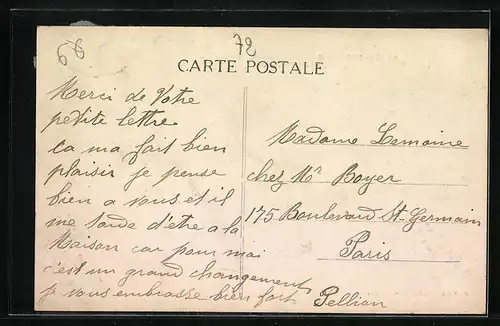 66
72
CARTE POSTALE
Merci de Votre
petite lettre
ca ma fait bien
plaisir je pense
bien a vous et il
me tarde d'etre a la
Maison car pour mai
c'est un grand changement
je vous embrasse bien fort
Pellian
Madame Lemoine
chez Mr Boyer
175 Boulevard St-Germain
Paris